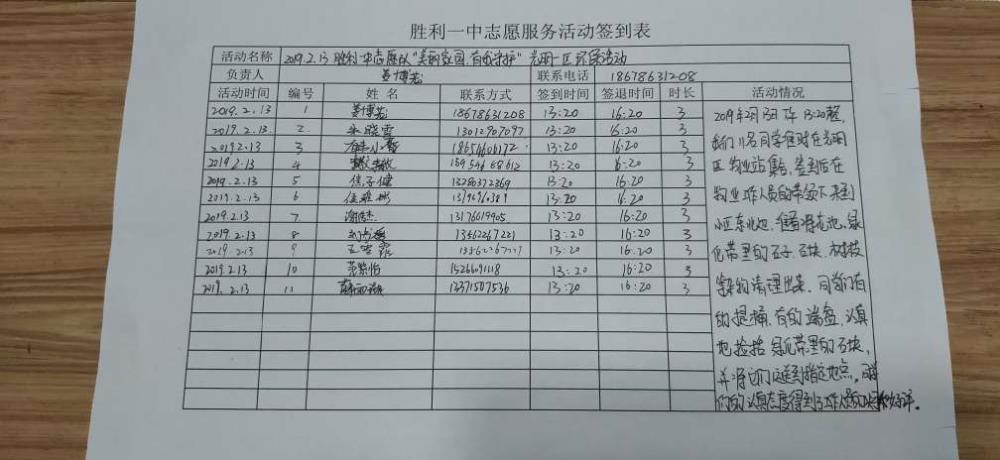 胜利一中志愿服务活动签到表
活动名称 2019.2.13 胜利一中志愿队"美丽家园,有我守护"光明一区环保活动
负责人 姜博 联系电话 18678631208
活动时间 编号 姓名 联系方式 签到时间 签退时间 时长 活动情况
2019.2.13 1 姜博 18678631208 13:20 16:20 3
2019.2.13 2 朱晓雪 13012907097 13:20 16:20 3
2019.2.13 3 13:20 16:20 3
2019.2.13 4 13:20 16:20 3
2019.2.13 5 焦子健 13280372369 13:20 16:20 3
2019.2.13 6 13:20 16:20 3
2019.2.13 7 13176019905 13:20 16:20 3
2019.2.13 8 13462267221 13:20 16:20 3
2019.2.13 9 13:20 16:20 3
2019.2.13 10 15266091118 13:20 16:20 3
2019.2.13 11 12371507536 13:20 16:20 3
2019年2月13日下午13:20整,
我们11名同学准时在光明
区物业站集合,签到后在
物业工作人员的带领下来到
小区东北边,准备将花池、绿
化带里的石子、石块、树枝
等杂物清理出来,同学们有
的提桶,有的端盆,认真
地捡拾绿化带里的石块,
并将它们运送到指定地点,同学
们的认真态度得到了工作人员的好评。